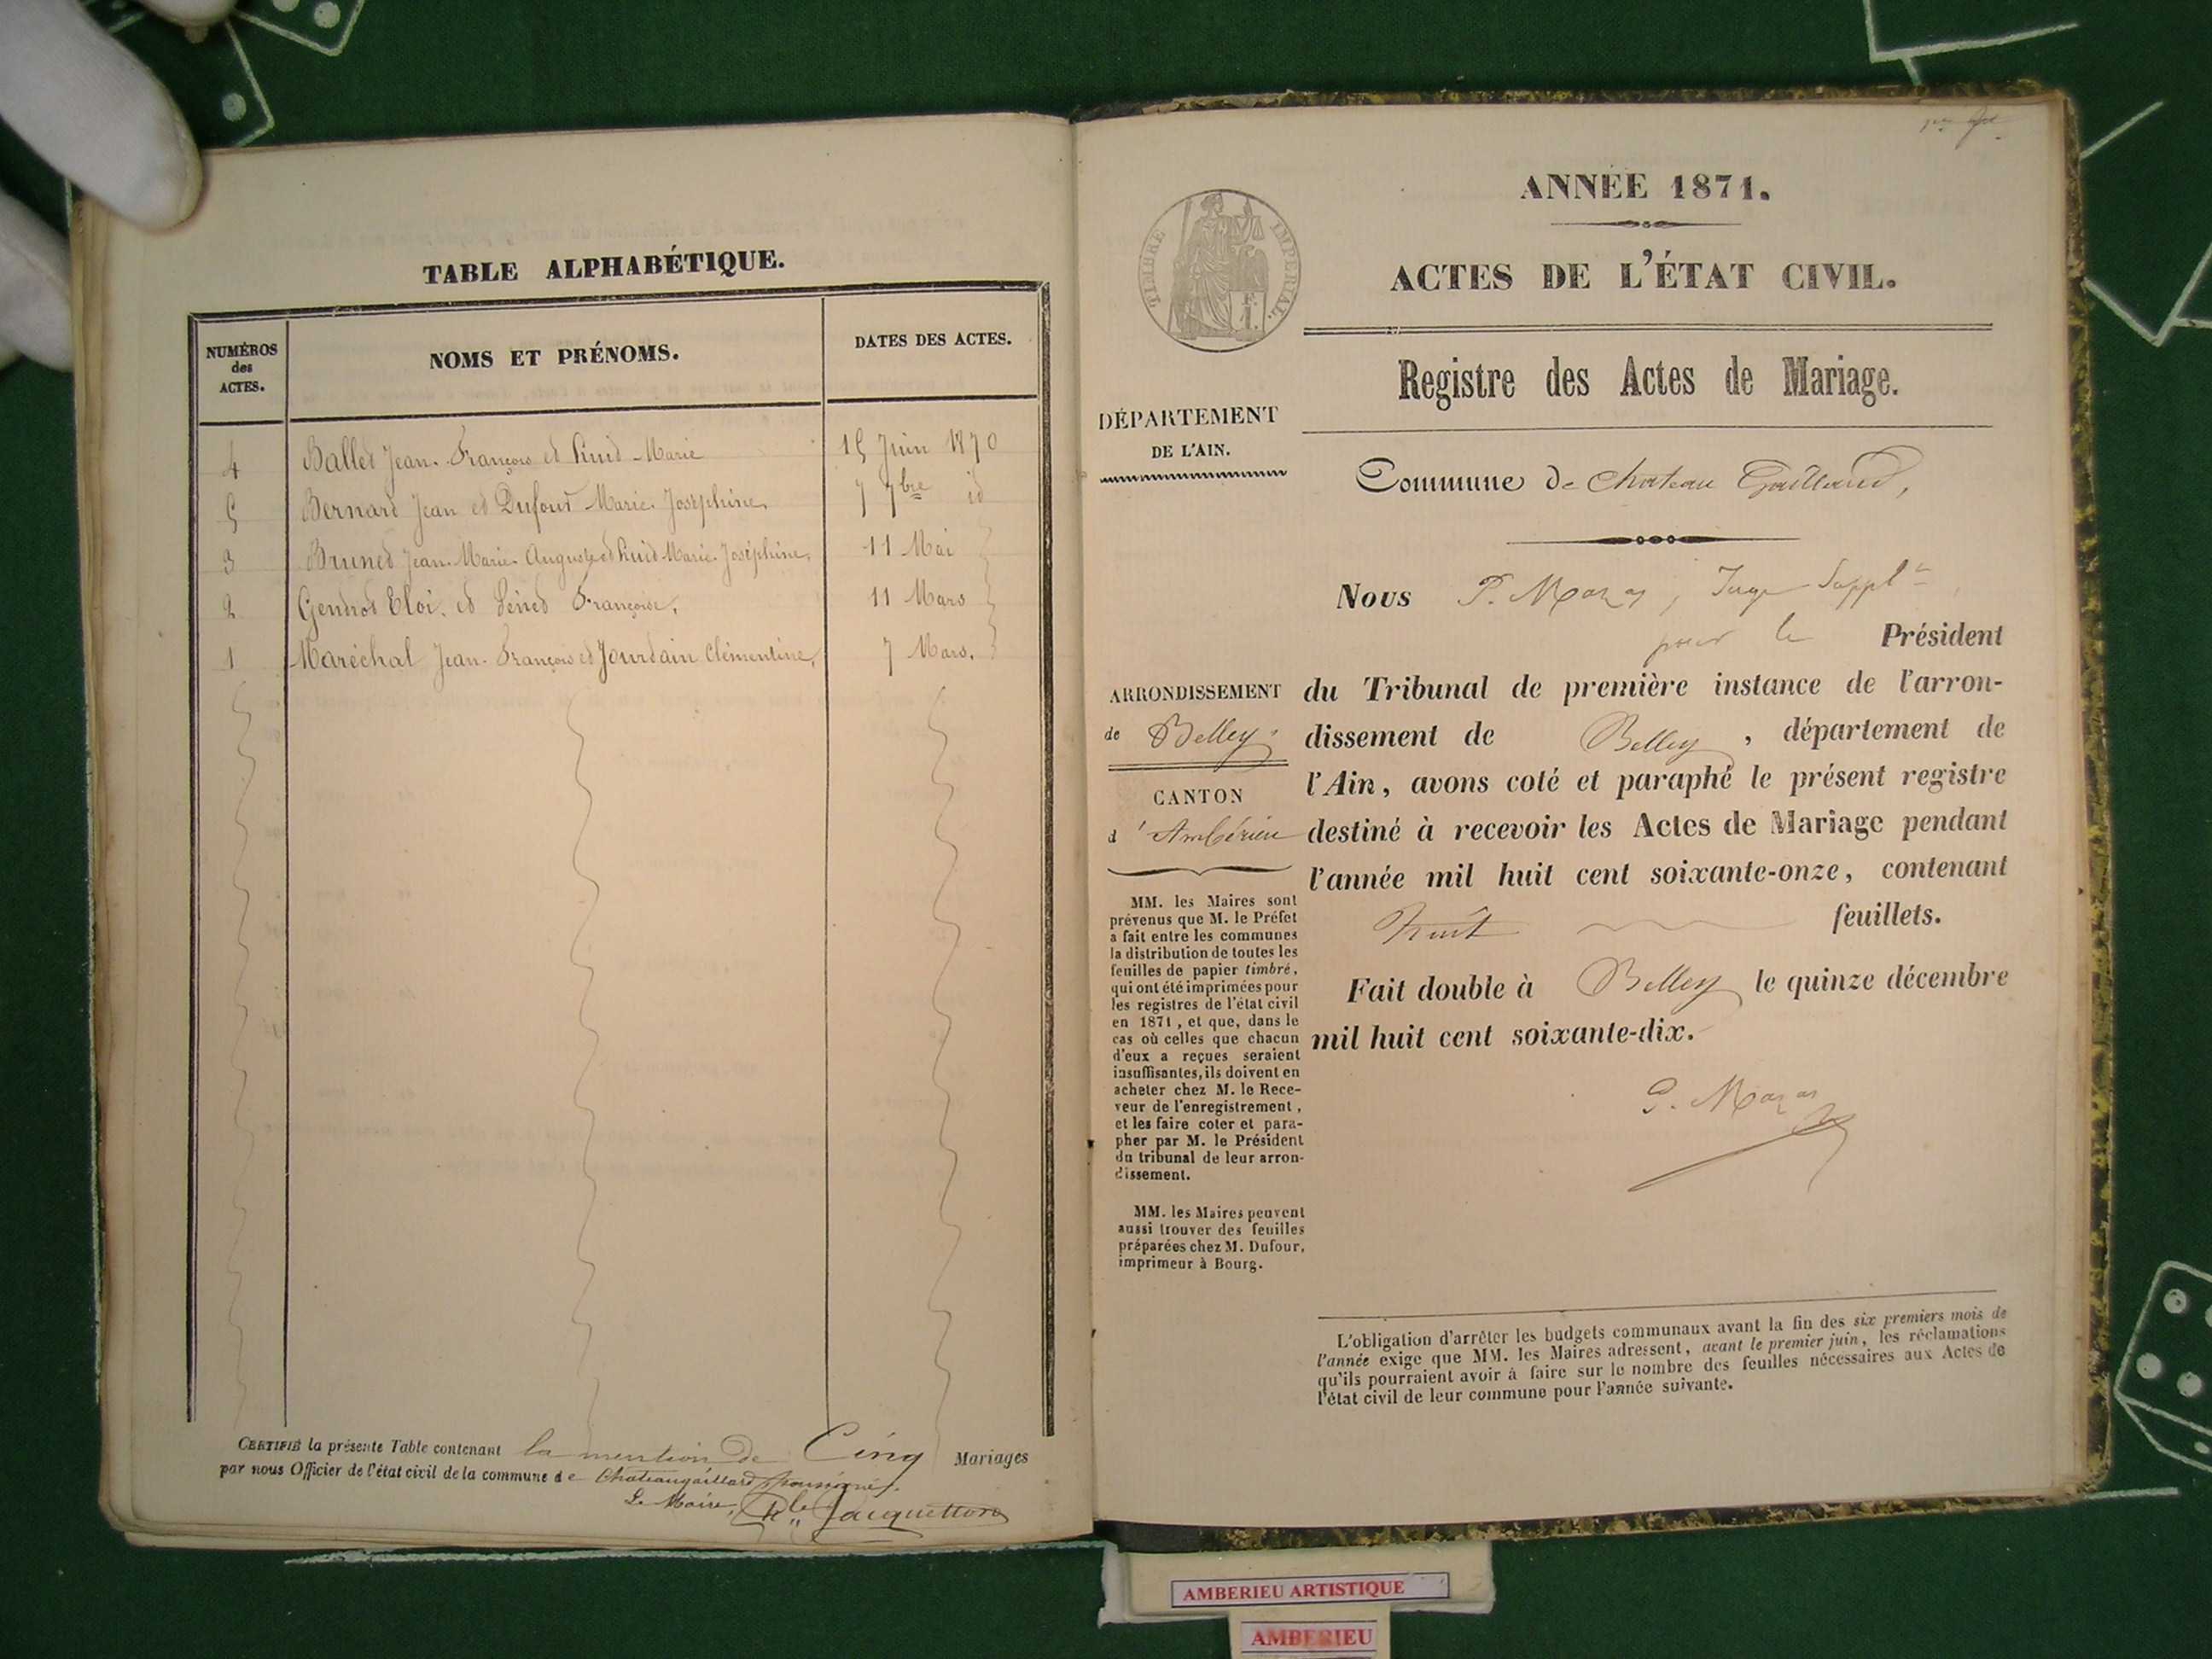 TABLE ALPHABÉTIQUE.
NUMÉROS des ACTES.
NOMS ET PRÉNOMS.
DATES DES ACTES.
4 Ballet Jean-François et Marie 15 Juin 1870
5 Bernard Jean et Dufour Marie-Joséphine. 7 7bre id
3 Brunet Jean-Marie-Auguste et Marie-Joséphine. 11 Mai
2 Eloi et Françoise. 11 Mars
1 Maréchal Jean-François et Jourdain Clémentine. 7 Mars.
CERTIFIÉ la présente Table contenant la mention de Cinq Mariages
par nous Officier de l'état civil de la commune de Chateaugaillard soussigné.
Le Maire,
1er
TIMBRE IMPERIAL.
ANNÉE 1871.
ACTES DE L'ÉTAT CIVIL.
Registre des Actes de Mariage.
DÉPARTEMENT
DE L'AIN.
Commune de Chateau Gaillard,
Nous P. Mazas, Juge Supplt
pour le Président
du Tribunal de première instance de l'arron-
dissement de Belley, département de
l'Ain, avons coté et paraphé le présent registre
destiné à recevoir les Actes de Mariage pendant
l'année mil huit cent soixante-onze, contenant
huit feuillets.
Fait double à Belley le quinze décembre
mil huit cent soixante-dix.
P. Mazas
ARRONDISSEMENT
de Belley.
CANTON
d'Ambérieu
MM. les Maires sont
prévenus que M. le Préfet
a fait entre les communes
la distribution de toutes les
feuilles de papier timbré,
qui ont été imprimées pour
les registres de l'état civil
en 1871, et que, dans le
cas où celles que chacun
d'eux a reçues seraient
insuffisantes, ils doivent en
acheter chez M. le Rece-
veur de l'enregistrement,
et les faire coter et para-
pher par M. le Président
du tribunal de leur arron-
dissement.
MM. les Maires peuvent
aussi trouver des feuilles
préparées chez M. Dufour,
imprimeur à Bourg.
L'obligation d'arrêter les budgets communaux avant la fin des six premiers mois de
l'année exige que MM. les Maires adressent, avant le premier juin, les réclamations
qu'ils pourraient avoir à faire sur le nombre des feuilles nécessaires aux Actes de
l'état civil de leur commune pour l'année suivante.
AMBERIEU ARTISTIQUE
AMBERIEU